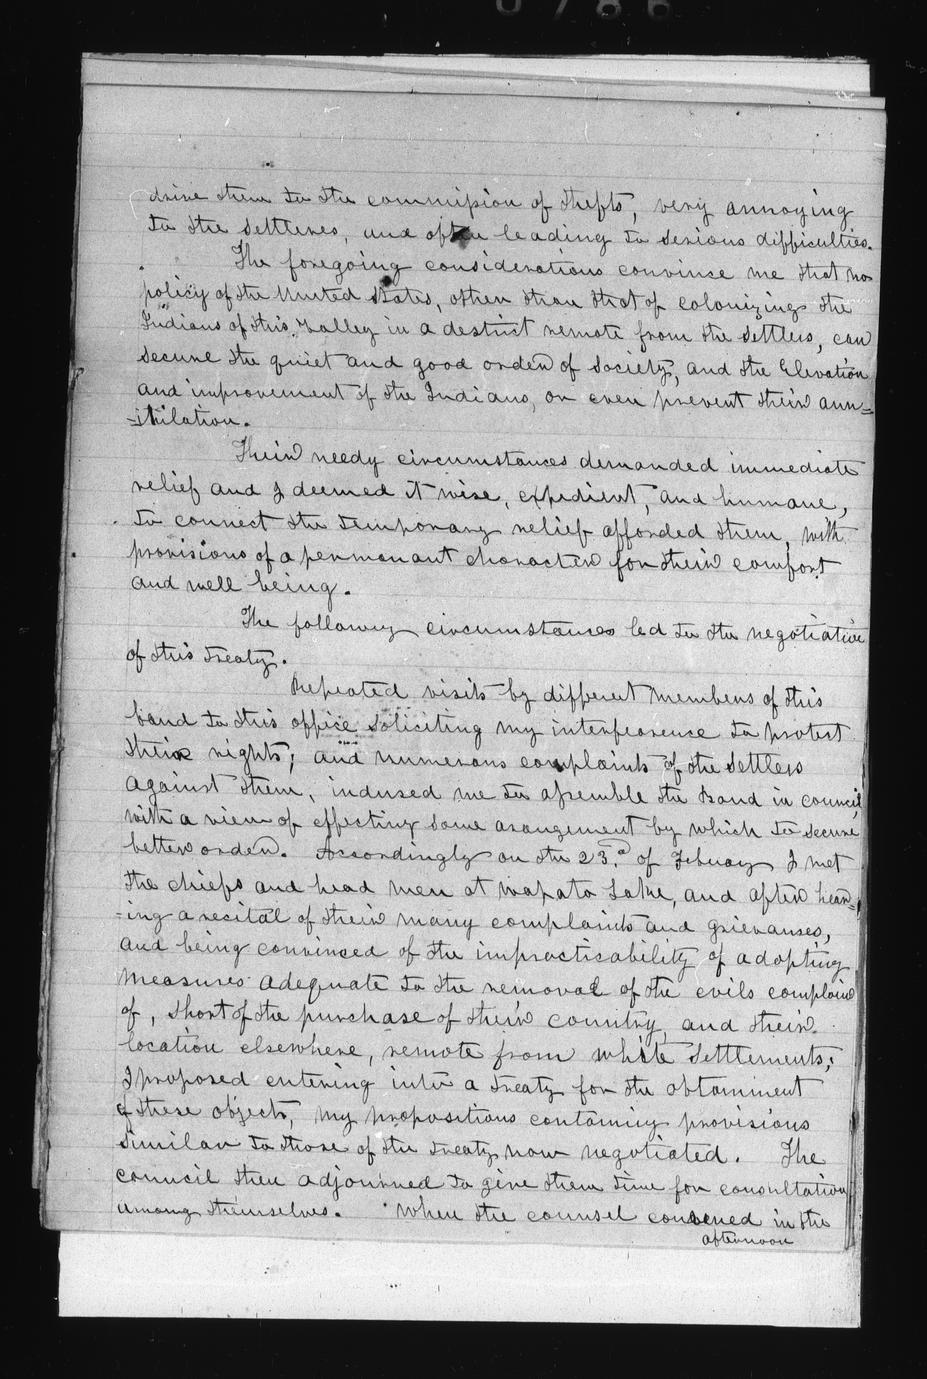 0786
drive them to the commission of thefts, very annoying
to the settleres, and often leading to serious difficulties.
The foregoing considerations convince me that no
policy of the United States, other than that of colonizing the
Indians of this Valley in a destrict remote from the settlers, can
secure the quiet and good order of society, and the Elevation
and improvement of the Indians, or even prevent their ann=
=ihilation.
Their needy circumstances demanded immediate
relief and I deemed it wise, expedient, and humane,
to connect the temporary relief afforded them, with
provisions of a permanant character for their comfort
and well being.
The following circumstances led to the negotiation
of this treaty.
Repeated visits by different members of this
band to this office soliciting my interfearence to protect
their rights; and numerous complaints of the settlers
against them, indused me to assemble the band in council,
with a view of effecting some arangement by which to secure
better order. Accordingly on the 23.d of Febuay I met
the chiefs and head men at Wapato Lake, and after hear=
=ing a recital of their many complaints and grievanses,
and being convinced of the impracticability of adopting
measures adequate to the removal of the evils complaind
of, short of the purchase of their country, and their
location elsewhere, remote from white settlements;
I proposed entering into a treaty for the obtainment
of these objects, my propositions containing provisions
similar to those of the treaty now negotiated. The
council then adjourned to give them time for consultation
among themselves. When the counsel convened in the
afternoon